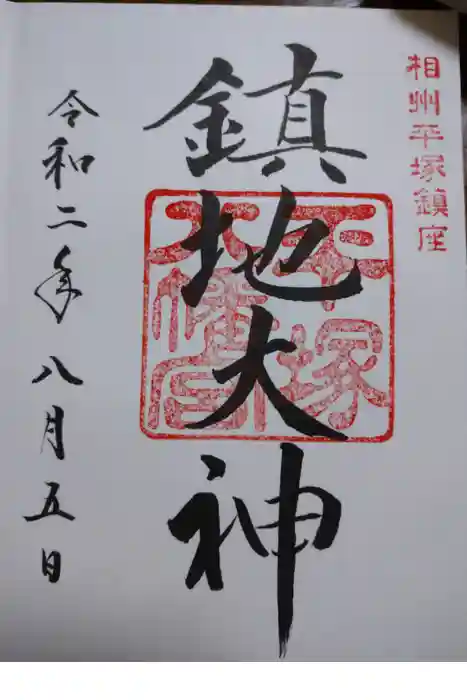 相州平塚鎮座
鎮地大神
平塚
八幡宮
令和二年八月五日